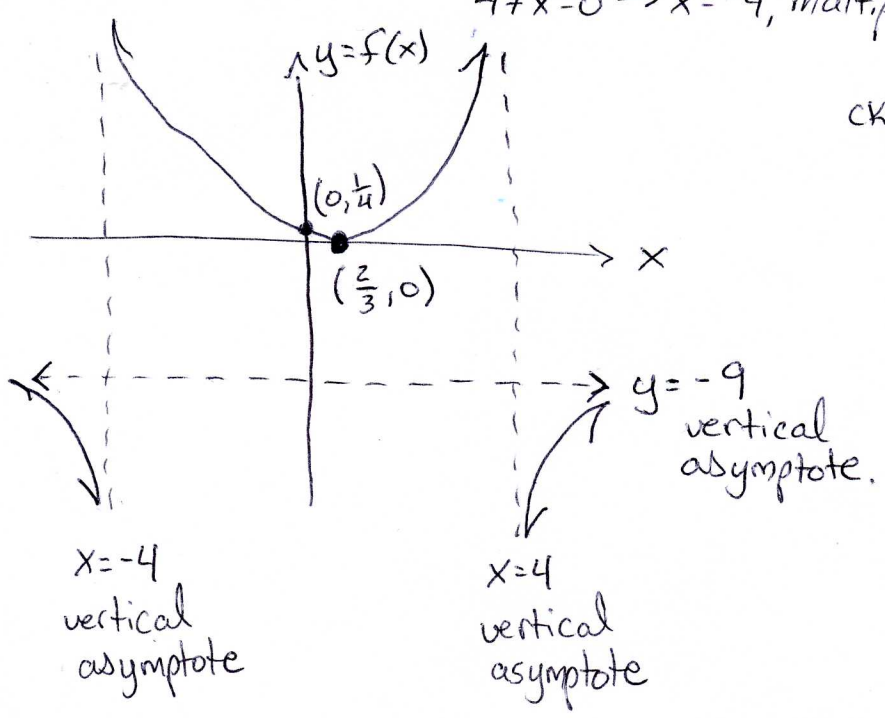 4+x=0 → x=-4, multip
ck
y=f(x)
(0,1/4)
x
(2/3,0)
y=-9
vertical
asymptote.
x=-4
vertical
asymptote
x=4
vertical
asymptote